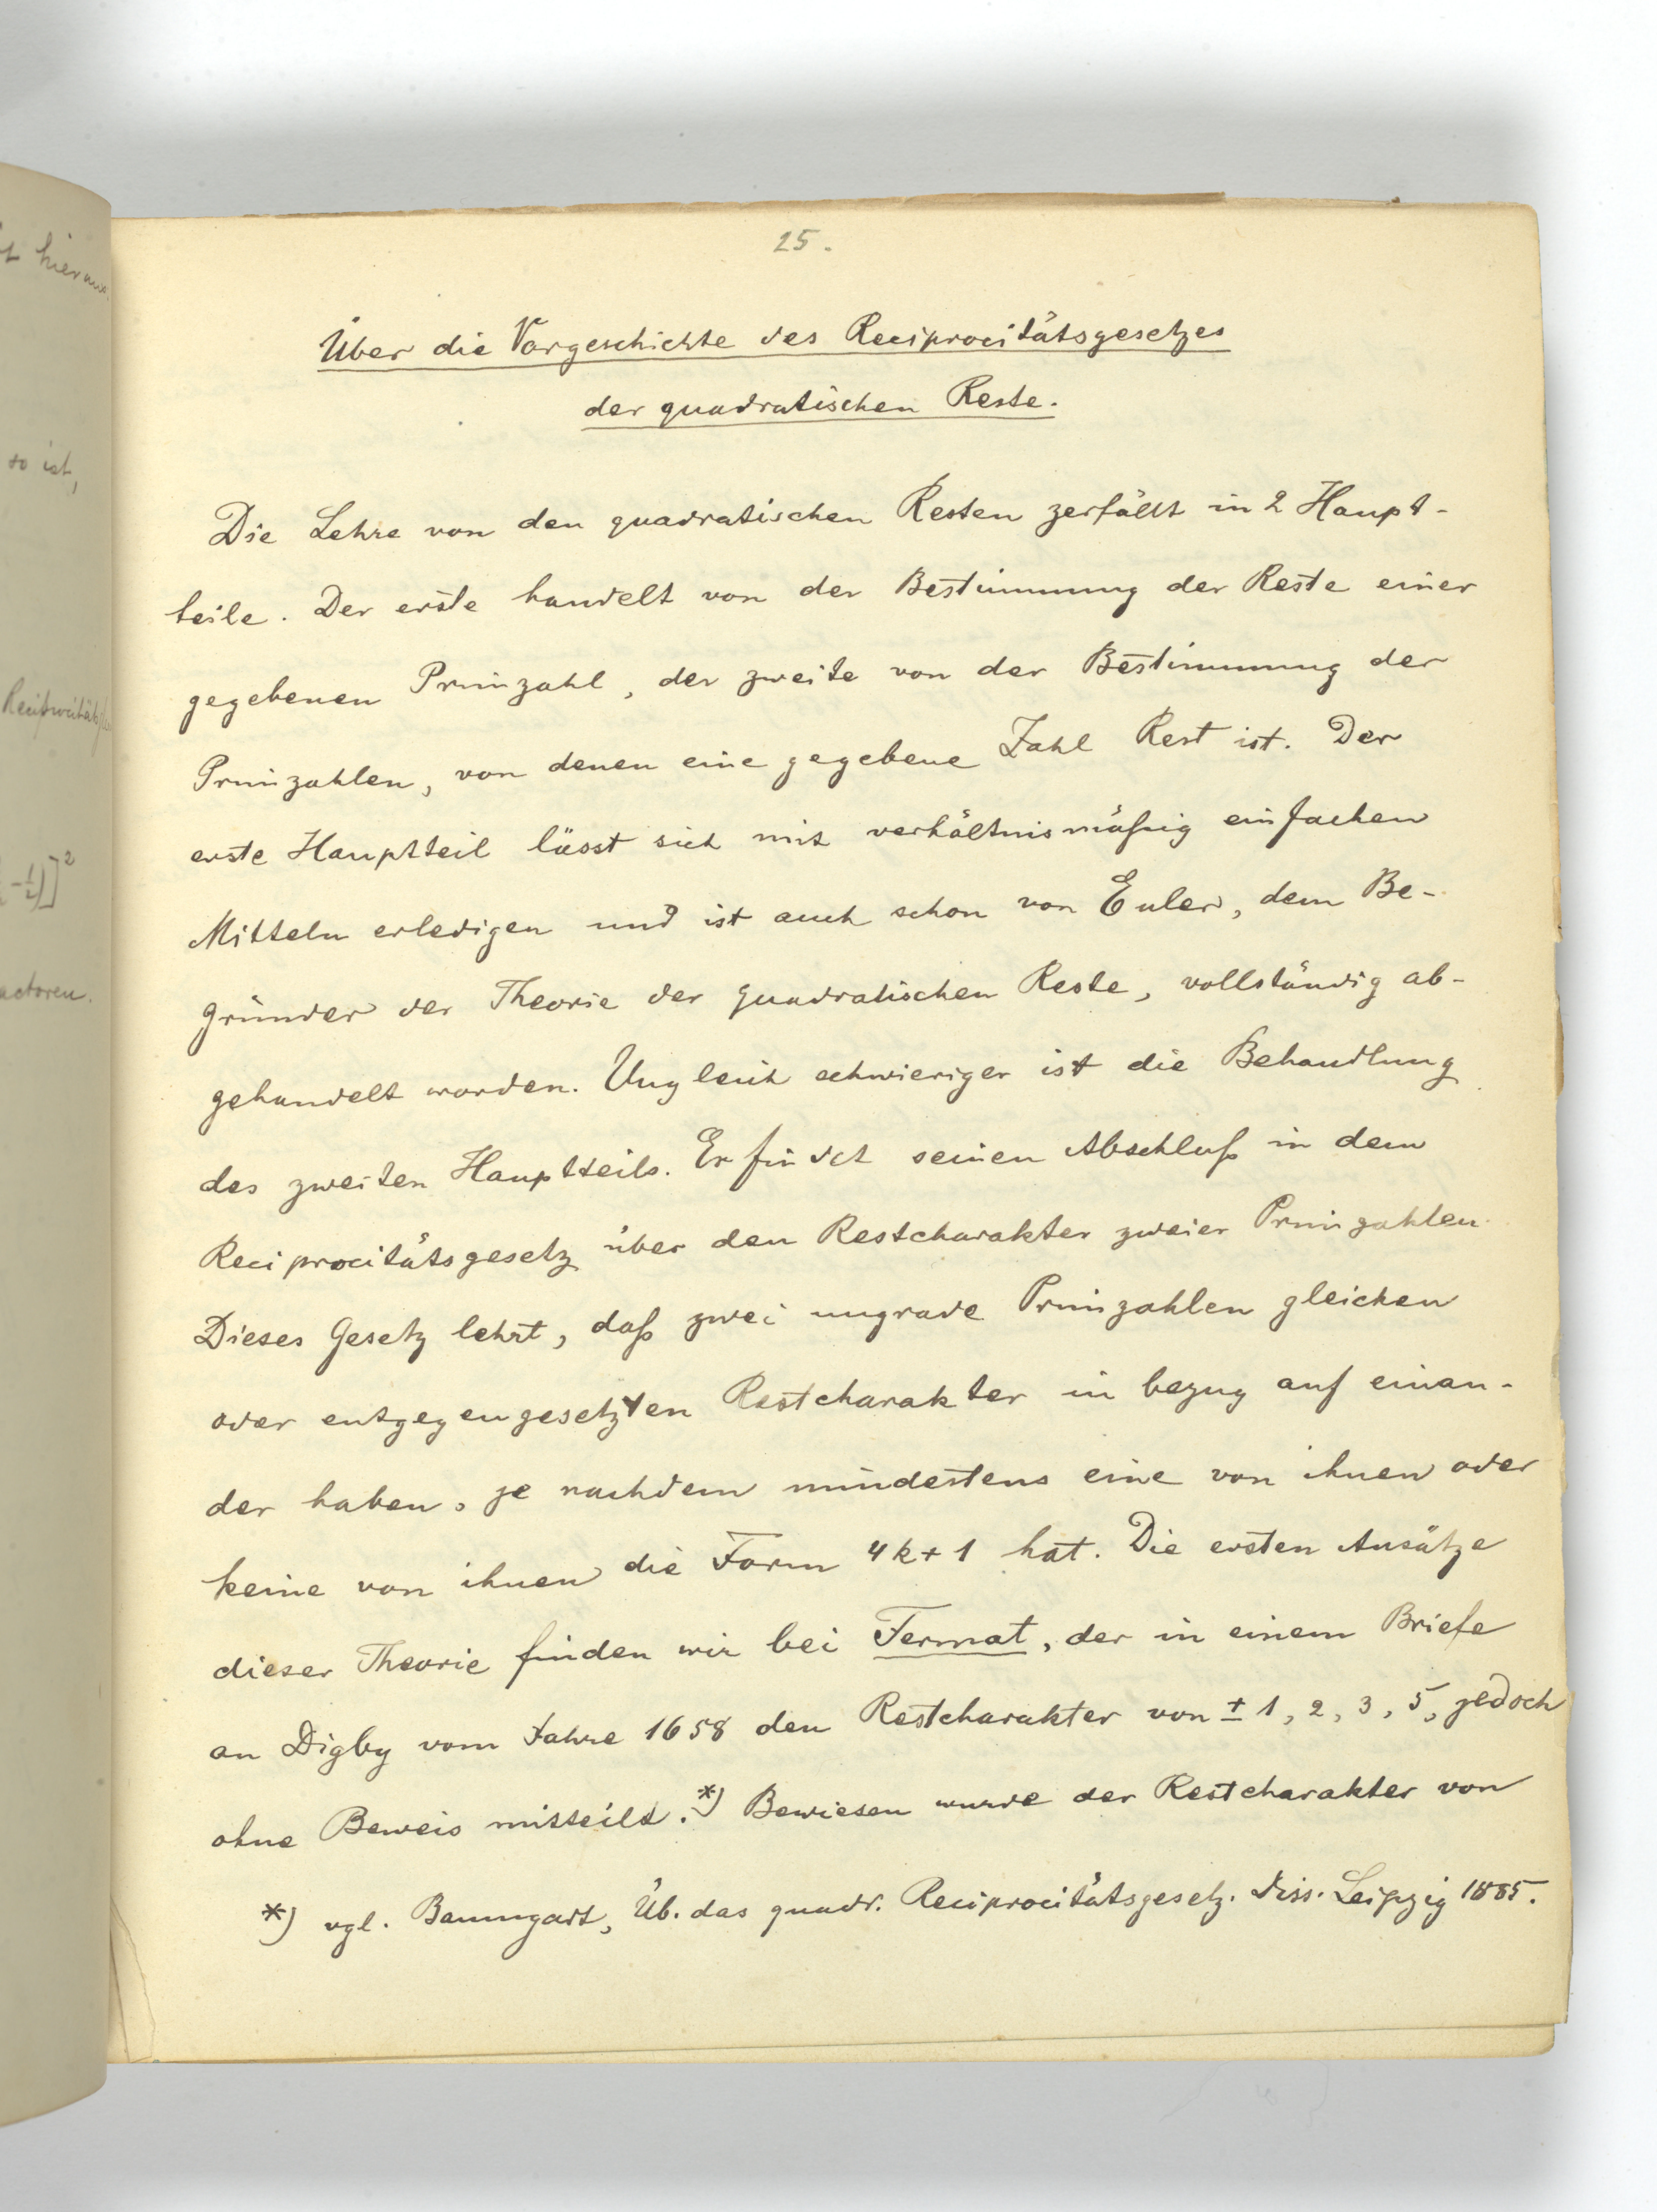 t hieraus
so ist,
-1/2)]²
actoren.
25.
Über die Vorgeschichte des Reciprocitätsgesetzes
der quadratischen Reste.
Die Lehre von den quadratischen Resten zerfällt in 2 Haupt-
teile. Der erste handelt von der Bestimmung der Reste einer
gegebenen Primzahl, der zweite von der Bestimmung der
Primzahlen, von denen eine gegebene Zahl Rest ist. Der
erste Hauptteil lässt sich mit verhältnismäßig einfachen
Mitteln erledigen und ist auch schon von Euler, dem Be-
gründer der Theorie der quadratischen Reste, vollständig ab-
gehandelt worden. Ungleich schwieriger ist die Behandlung
des zweiten Hauptteils. Er findet seinen Abschluß in dem
Reciprocitätsgesetz über den Restcharakter zweier Primzahlen.
Dieses Gesetz lehrt, daß zwei ungrade Primzahlen gleichen
oder entgegengesetzten Restcharakter in bezug auf einan-
der haben, je nachdem mindestens eine von ihnen oder
keine von ihnen die Form 4k+1 hat. Die ersten Ansätze
dieser Theorie finden wir bei Fermat, der in einem Briefe
an Digby vom Jahre 1658 den Restcharakter von ± 1, 2, 3, 5, jedoch
ohne Beweis mitteilt.*) Bewiesen wurde der Restcharakter von
*) vgl. Baumgart, Üb. das quadr. Reciprocitätsgesetz. Diss. Leipzig 1885.